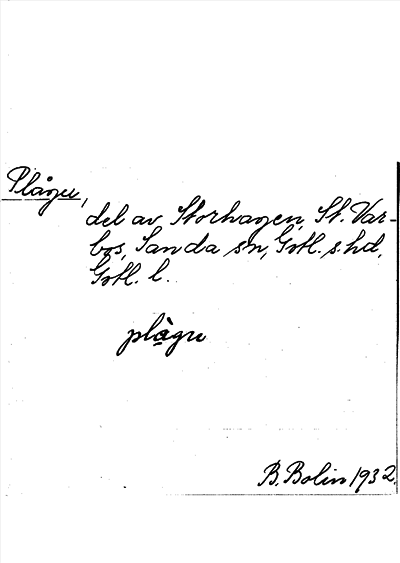 Plågu,
del av Storhagen, St. Var-
bos, Sanda sn, Gotl. s. hd,
Gotl. l.
plågu
B. Bolin 1932.